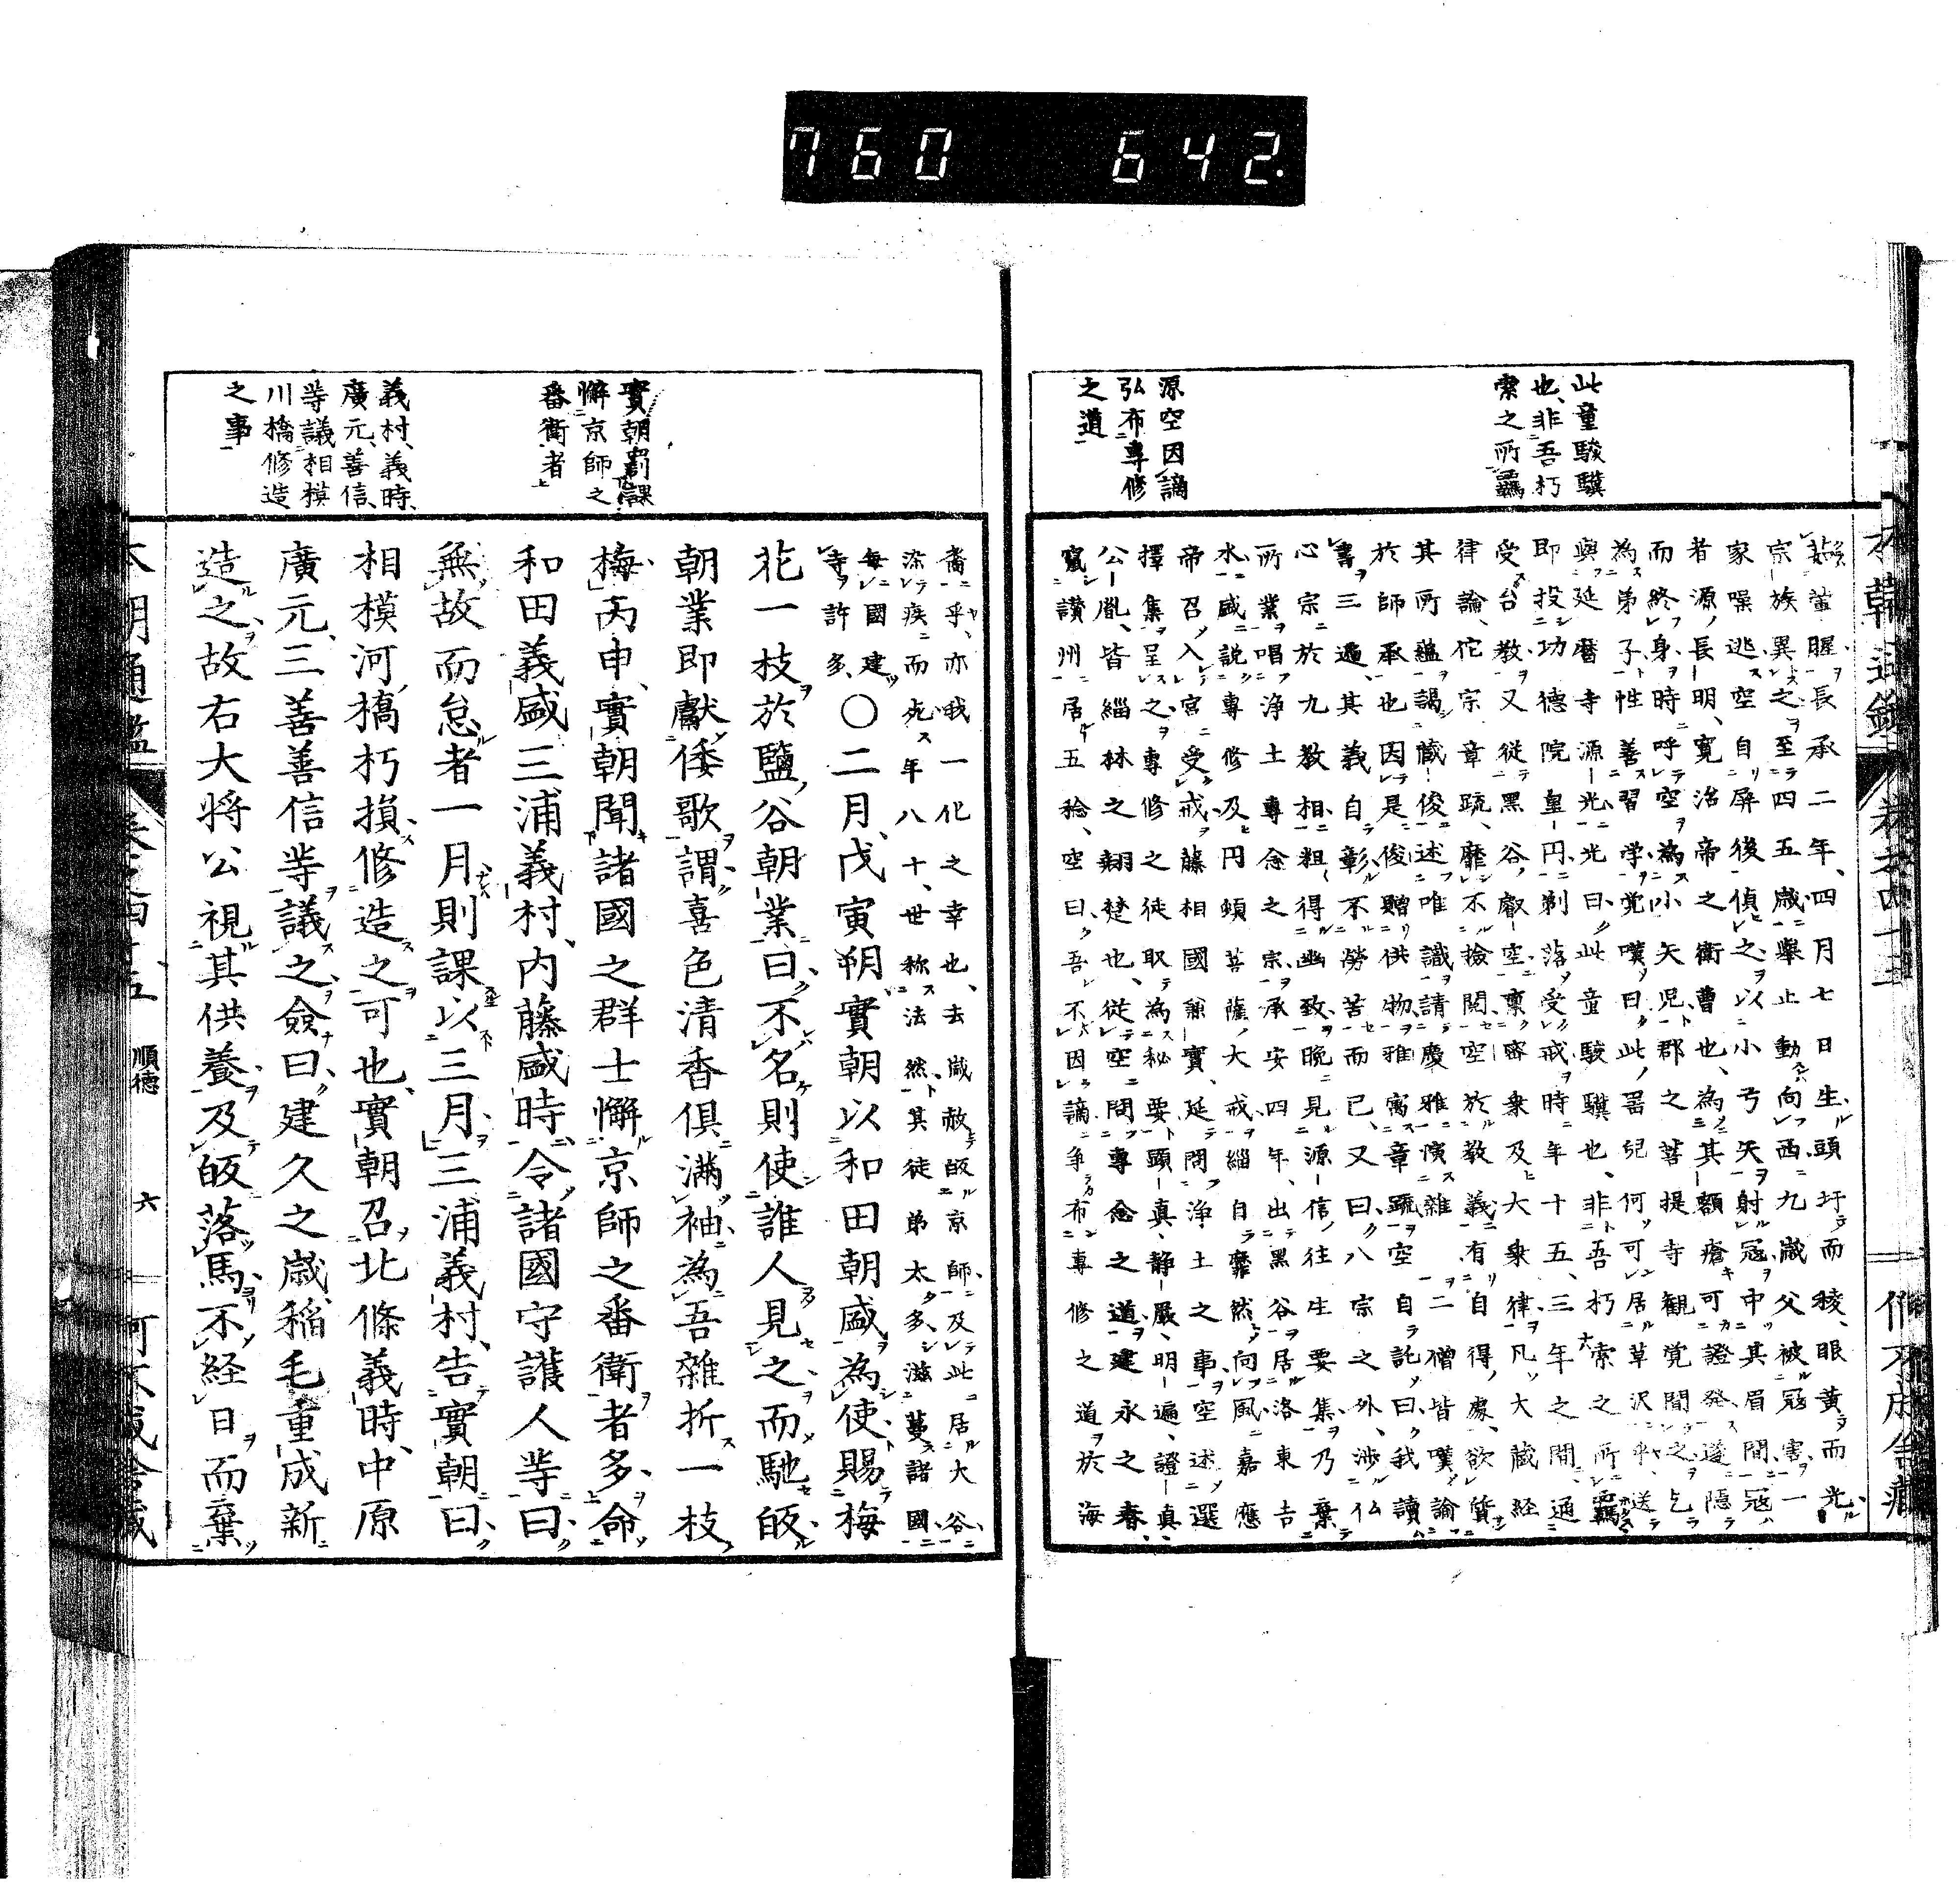 760 642.
此童駿驥
也、非吾朽
索之所羈
源空因謫
弘布專修
之道
葷腥長承二年四月七日生、頭圩而稜、眼黄而光
宗族異之、至四五歳、擧止動向西、九歳父被冦害、一
家噪逃、空自屏後偵之、以小弓矢射冦、中其眉間、冦
者源長明、寛治帝之衛曹也、為其額瘡可證發、遂隱
而終身、時呼空為小矢児、郡之菩提寺観覚間之、乞
為弟子、性善習学、覚嘆曰、此罟兒何可居草沢乎、送
與延暦寺源光、光曰、此童駿驥也、非吾朽索之所羈、
即投功德院皇円、剃落受戒、時年十五、三年之間、通
受台教、又從黒谷叡空、稟密乗及大乗律、凡大藏経
律論、佗宗章疏、靡不撿閲、空於教義有自得處、欲質
其所蘊、謁藏俊述唯識、請慶雅演雜二、僧皆嘆論
於師承也、因是俊贈供物、雅寓章疏、空自託曰、我讀
書三遍、其義自彰、不勞苦而已、又曰、八宗之外、渉仏
心宗、於九教相粗得幽致、晩見源信往生要集、乃棄
所業、唱浄土專念之宗、承安四年、出黒谷居洛東吉
水、盛説專修及円頓菩薩大戒、緇自靡然向風、嘉應
帝召入宮受戒、藤相國兼實延問浄土之事、空述選
擇集呈之、專修之徒、取為秘要、顕真、静嚴、明遍、證真、
公胤、皆緇林之翹楚也、從空問專念之道、建永之春、
竄讃州、居五稔、空曰、吾不因謫、争布專修之道於海
實朝罰課
懈京師之
番衛者
義村、義時、
廣元、善信、
等議相模
川橋修造
之事
裔乎、亦我一化之幸也、去歳赦皈京師、及此居大谷、
染疾而死、年八十、世称法然、其徒弟太多、滋蔓諸國、
毎國建
寺許多、〇二月、戊寅朔、實朝以和田朝盛為使、賜梅
花一枝於鹽谷朝業曰、不名則使誰人見之而馳皈、
朝業即獻倭歌、謂喜色清香倶満袖、為吾雜折一枝
梅、丙申、實朝聞諸國之群士懈京師之番衛者多、命
和田義盛三浦義村、内藤盛時、令諸國守護人等曰、
無故而怠者一月、則課以三月、三浦義村、告實朝曰、
相模河橋朽損、修造之可也、實朝召北條義時、中原
廣元、三善善信等議之、僉曰、建久之歳、稲毛重成新
造之、故右大将公視其供養、及皈落馬、不経日而棄
順德
六